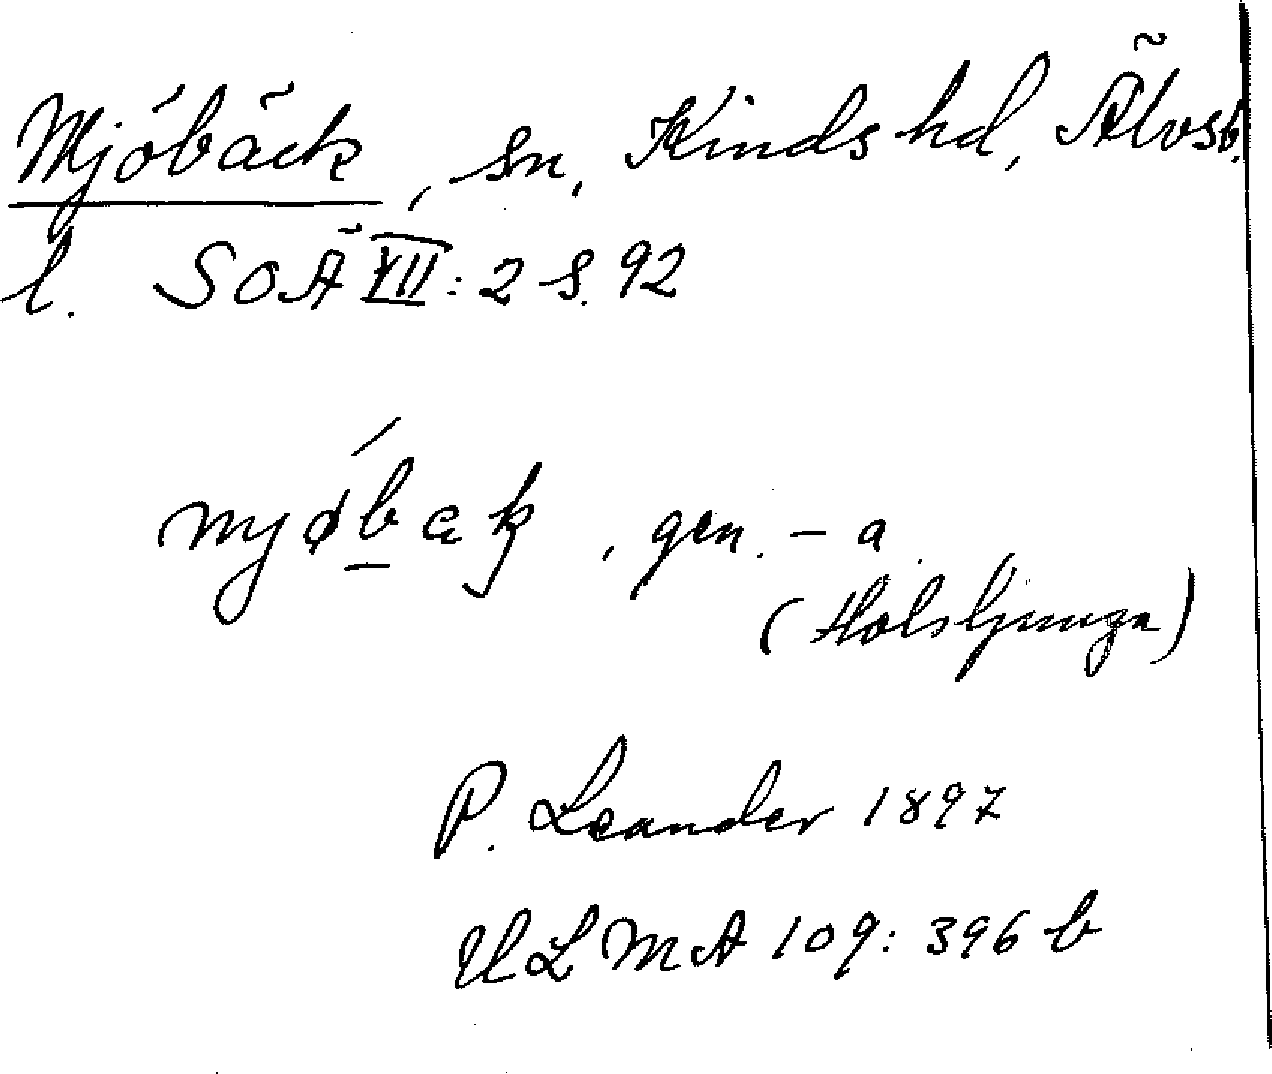 Mjöbäck, sn, Kinds hd, Älvsb.
l. SOÄ VII:2 s. 92
mjøbæk, gen. -a
(Holsljunga)
P. Leander 1897
ULMA 109:396 b